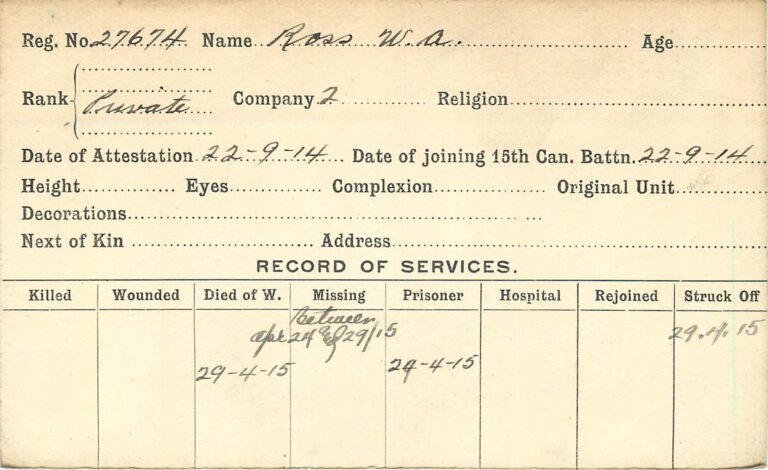 Reg. No. 27674 Name Ross W. A. Age
Rank Private Company 2 Religion
Date of Attestation 22-9-14 Date of joining 15th Can. Battn. 22-9-14
Height Eyes Complexion Original Unit
Decorations
Next of Kin Address
RECORD OF SERVICES.
Killed Wounded Died of W. Missing Prisoner Hospital Rejoined Struck Off
Between
Apr 24 & 29/15 29.4.15
29-4-15 24-4-15